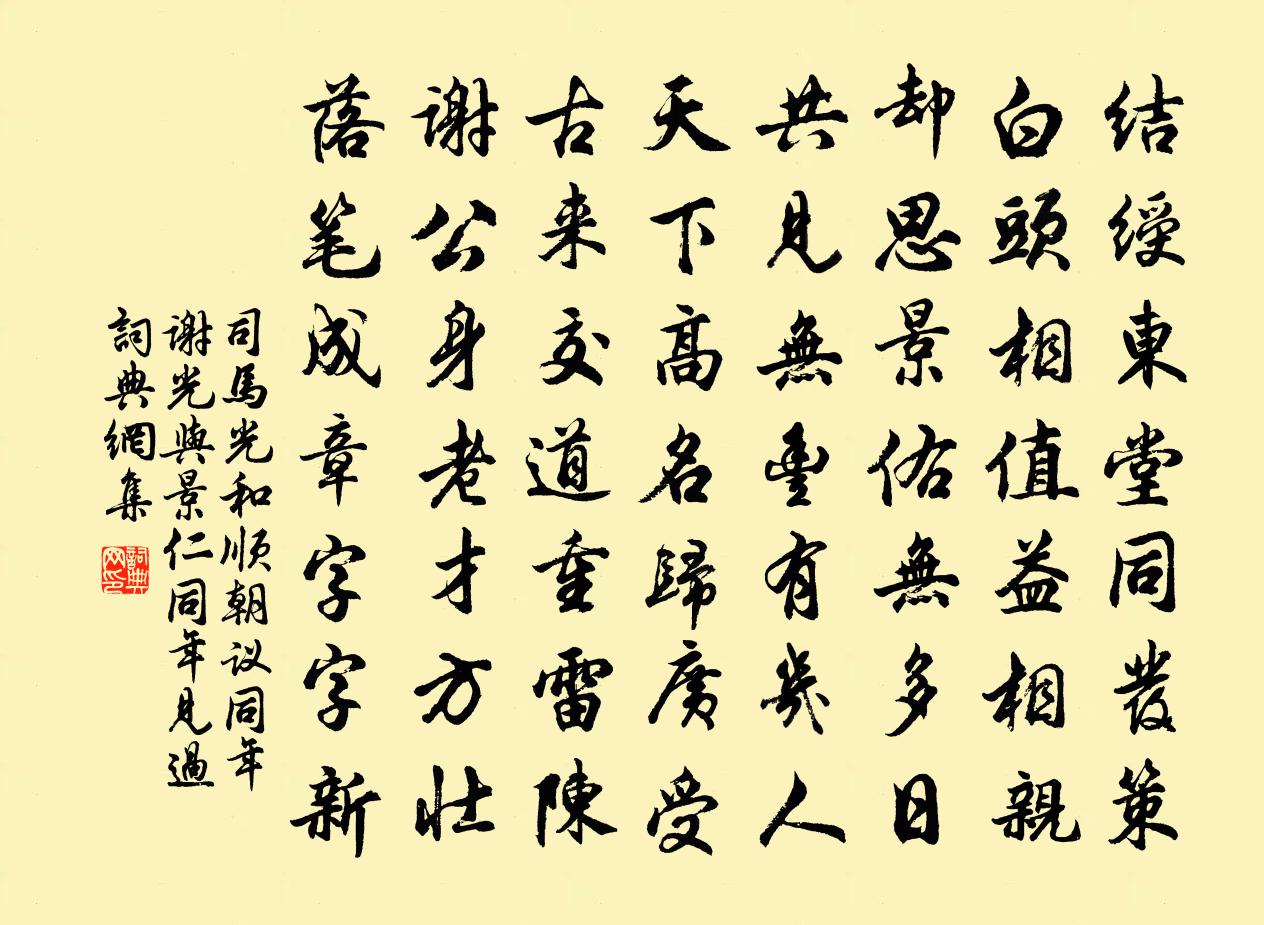 结綬東堂同發策
白頭相值益相親
却思景佑無多日
共見無豐有幾人
天下髙名歸廣受
古来交道重雷陳
谢公身老才方壮
落笔成章字字新
司馬光和顺朝议同年
谢光與景仁同年見過
詞典網集
詞典网印